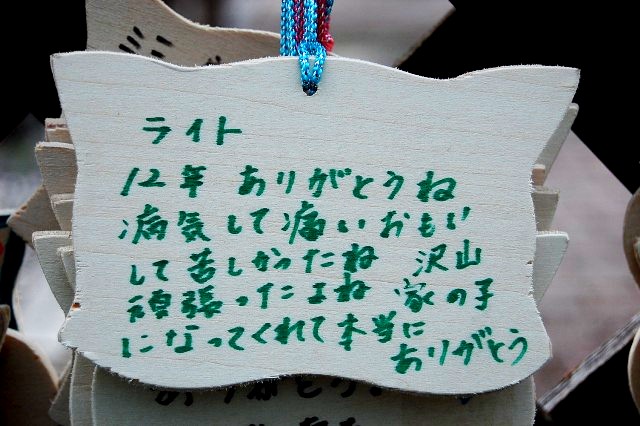 ライト
12年 ありがとうね
病気して痛いおもい
して苦しかったね 沢山
頑張ったよね 家の子
になってくれて本当に
ありがとう